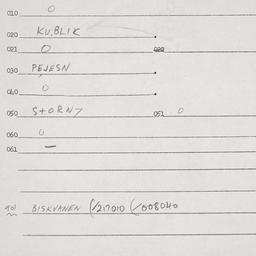 010 0
020 KU.BLIK
021 0 022
030 PEJESN
040 0
050 STORNZ 051 0
060 0
061 —
901 BISKVANEN (/217010 (/008040